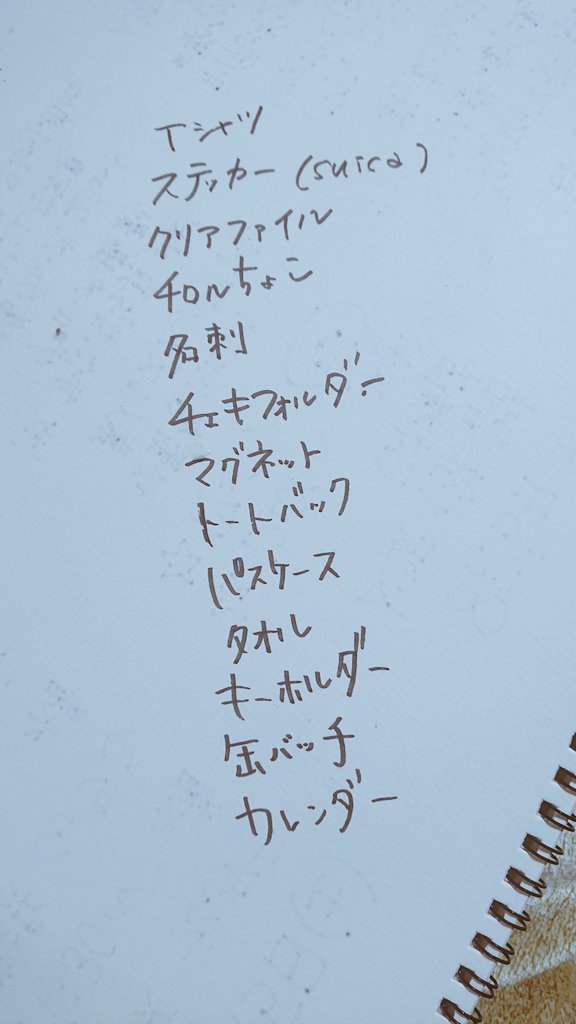 Tシャツ
ステッカー (suica)
クリアファイル
チロルちょこ
名刺
チェキフォルダー
マグネット
トートバック
パスケース
タオル
キーホルダー
缶バッチ
カレンダー